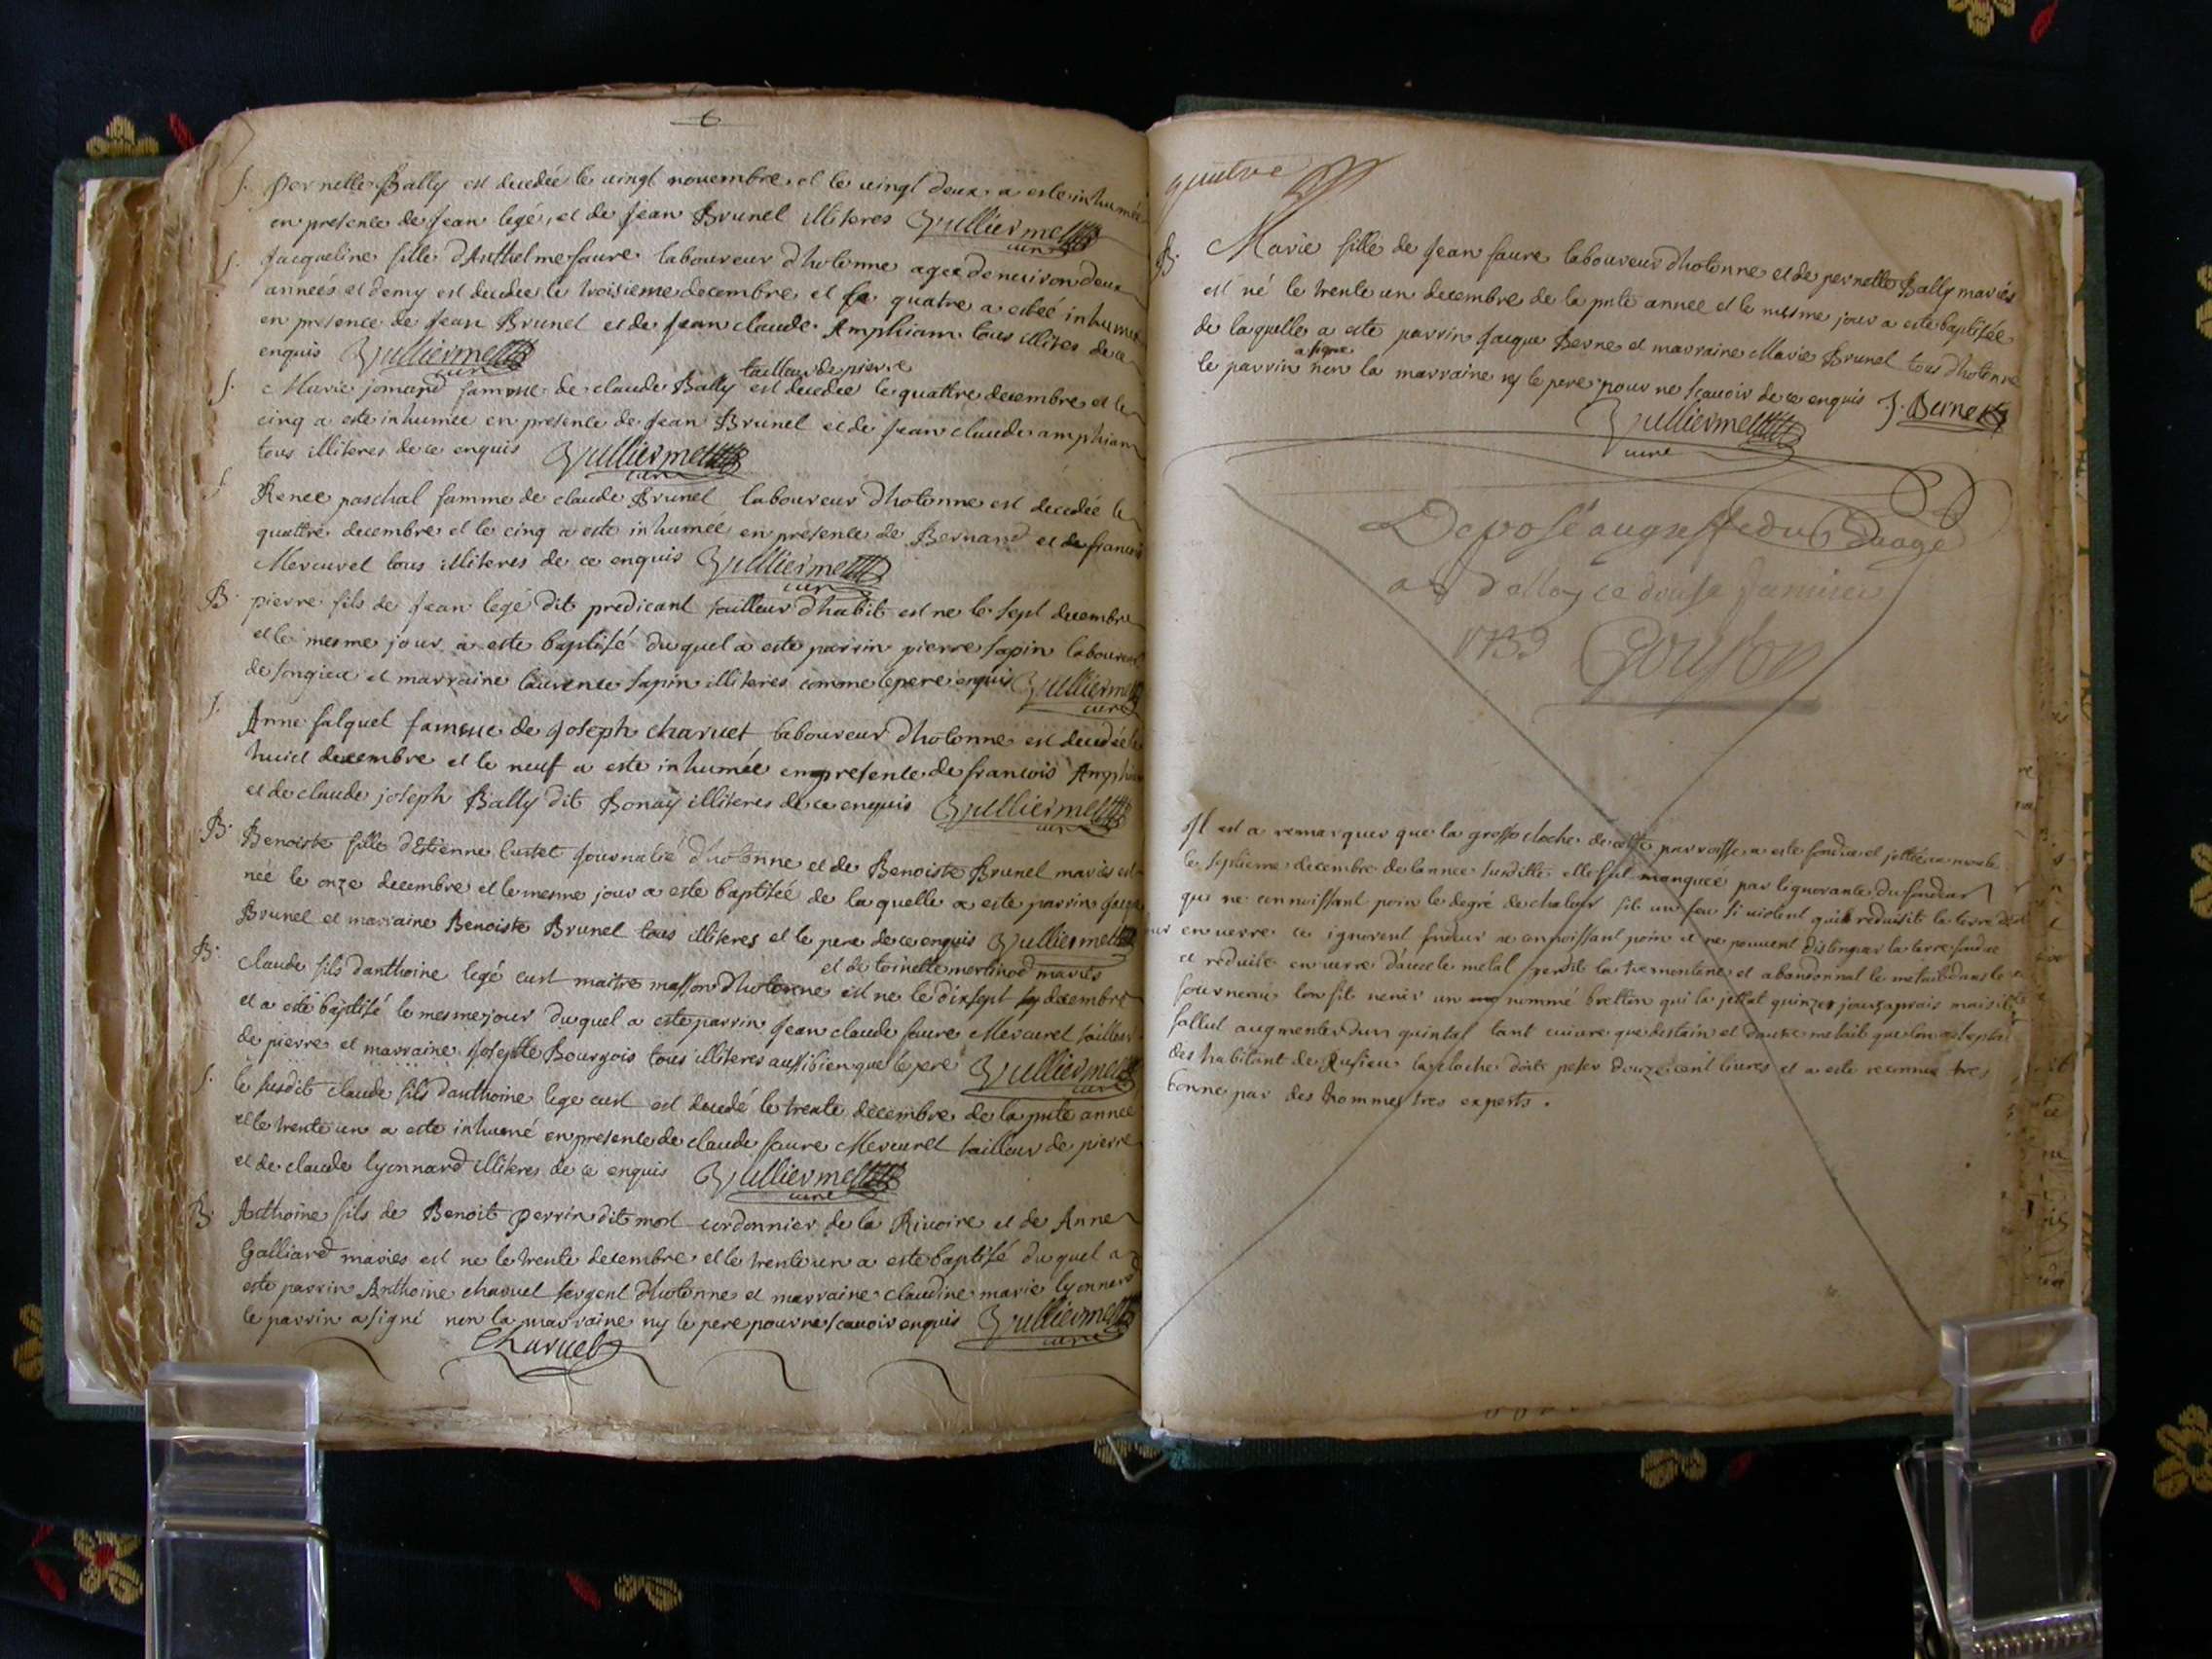 6
S. pernette Bally est decedée le vingt novembre et le vingt deux a esté inhumée
en presence de Jean legé, et de Jean Brunel illiteres Vulliermet
curé
S. Jacqueline fille dAnthelme faure laboureur dhotonne agée denviron deux
années et demy est decedée le troisieme decembre et le quatre a esteé inhumée
en presence de Jean Brunel et de Jean claude Amphiam tous illiteres de ce
enquis Vulliermet
curé
tailleur de pierre
S. Marie jomand famme de claude Bally est decedée le quattre decembre et le
cinq a este inhumée en presence de Jean Brunel et de Jean claude amphiam
tous illiteres de ce enquis Vulliermet
curé
S. Renee paschal famme de claude Brunel laboureur dhotonne est decedée le
quattre decembre et le cinq a este inhumée en presence de Bernand et de francois
Mercuret tous illiteres de ce enquis Vulliermet
curé
B. pierre fils de Jean legé dit predicant tailleur dhabit est ne le sept decembre
et le mesme jour a este baptisé du quel a este parrin pierre sapin laboureur
de songieu et marraine laurence sapin illiteres comme le pere enquis Vulliermet
curé
S. Anne falquet famme de Joseph charvet laboureur dhotonne est decedée le
huict decembre et le neuf a este inhumée en presence de francois Amphiam
et de claude joseph Bally dit Bonay illiteres de ce enquis Vulliermet
curé
B. Benoiste fille dEstienne lustet Journalié dhotonne et de Benoiste Brunel mariés est
née le onze decembre et le mesme jour a este baptisée de la quelle a este parrin Jaque
Brunel et marraine Benoiste Brunel tous illiteres et le pere de ce enquis Vulliermet
et de toinette merlinod mariés
B. claude fils danthoine legé cust maitre masson dhotonne est ne le dixsept decembre
et a esté baptisé le mesme jour du quel a este parrin Jean claude faure Mercuret tailleur
de pierre et marraine Josephte Bourgois tous illiteres aussi bien que le pere Vulliermet
curé
S. le susdit claude fils danthoine lege cust est decedé le trente decembre de la pnte année
et le trente un a este inhumé en presence de claude faure Mercuret tailleur de pierre
et de claude lyonnard illiteres de ce enquis Vulliermet
curé
B. Anthoine fils de Benoit perrin dit mod cordonnier de la Rivoire et de Anne
Galliard mariés est ne le trente decembre et le trente un a este baptisé du quel a
este parrin Anthoine charvet sergent dhotonne et marraine claudine marie lyonnard
le parrin a signé non la marraine ny le pere pour ne scavoir enquis Vulliermet
curé
Charvet
quatre
B. Marie fille de Jean faure laboureur dhotonne et de pernette Bally mariés
est né le trente un decembre de la pnte annee et le mesme jour a este baptisée
de laquelle a este parrin Jacque Berne et marraine Marie Brunel tous dhotonne
a signe
le parrin non la marraine ny le pere pour ne scavoir de ce enquis J. Berne
Vulliermet
curé
Deposé au greffe du
ce douse Janvier
1739
Il est a remarquer que la grosse cloche de cette parroisse a este fondue et jettée en moule
le septieme decembre de lannee susditte elle fut manqueé par lignorante du fondeur
qui ne connoissant poin le degré de chaleur fit un feu si violent quil reduisit la terre
en verre ce ignorent fondeur ne connoissant poin et ne pouvent distinguer la terre fondue
et reduite en verre d'avec le metal perdit la tremontene et abandonnat le metail dans le
fourneau lon fit venir un nommé bretton qui la jettat quinzes jours aprois mais il
fallut augmenter dun quintal tant cuivre que destain et dautre metail que lon
des habitant de Rufieu la cloche doit peser douze cent livres et a este reconnue tres
bonne par des hommes tres experts.